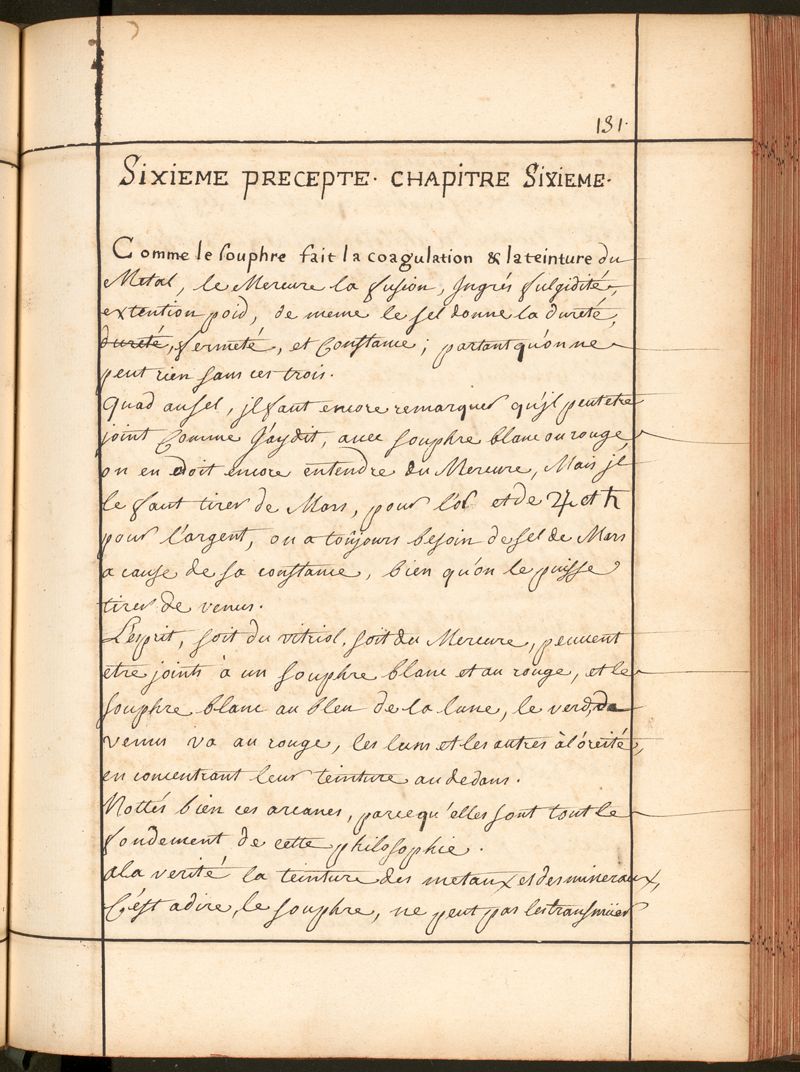 131.
SIXIEME PRECEPTE. CHAPITRE SIXIEME.
Comme le souphre fait la coagulation & la teinture du
Metal, le Mercure la fusion, Ingrés fulgidité,
extention poid, de meme le sel donne la dureté,
dureté, fermeté, et Constance; partant qu'on ne
peut rien sans ces trois.
Quad au sel, jl faut encore remarquer qu'jl peut etre
joint Comme J'ay dit, avec souphre blanc ou rouge,
on en doit encore entendre du Mercure, Mais jl
le faut tirer de Mars, pour l'or et de ♃ et ♄
pour l'argent, on a toujours besoin de sel de Mars
a cause de sa constance, bien qu'on le puisse
tirer de venus.
L'esprit, soit du vitriol, soit du Mercure, peuvent
etre joints à un souphre blanc et au rouge, et le
souphre blanc au bleu de la lune, le verd de
venus va au rouge, les luns et les autres à l'oreité,
en concentrant leur teinture au dedans.
Nottés bien ces arcanes, parcequ'elles sont tout le
fondement de cette philosophie.
a la verité la teinture des metaux et des mineraux,
C'est a dire, le souphre, ne peut pas les transmüer